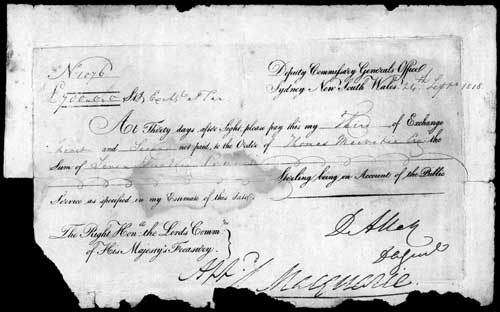 No. 1076
Deputy Commissary Generals Office
Sydney New South Wales 24th Sept 1816
Stg Exch at Par
At Thirty days after Sight, please pay this my Third of Exchange
first and Second not paid, to the Order of Thomas Macvitie Esq the
Sum of Seven
Sterling being on Account of the Public
Service as specified in my Estimate of this date
The Right Honble. the Lords Commrs
of His Majesty's Treasury.
D. Allan
App.
Macquarie.